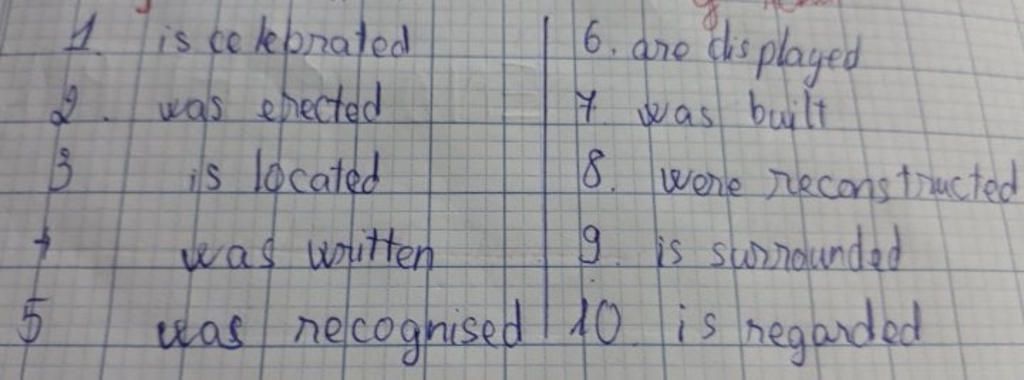 1. is celebrated
2. was erected
3 is located
4 was written
5 was recognised
6. are displayed
7. was built
8. were reconstructed
9. is surrounded
10. is regarded